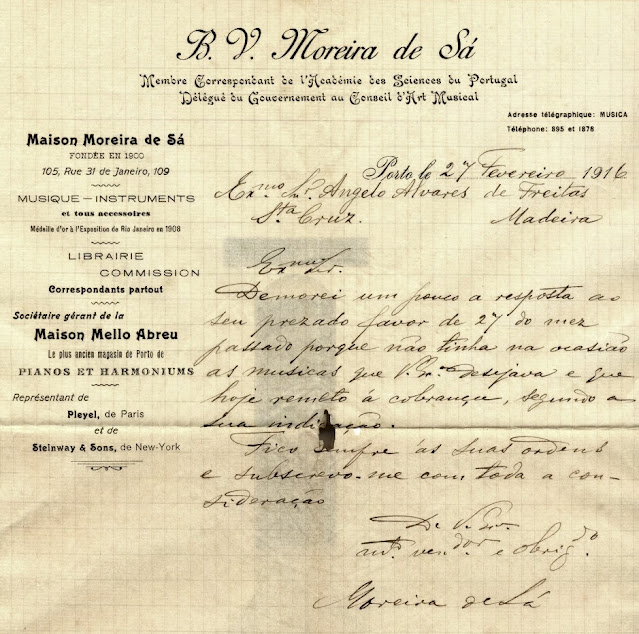 B. V. Moreira de Sá
Membre Correspondant de l'Académie des Sciences du Portugal
Délégué du Gouvernement au Conseil d'Art Musical
Adresse télégraphique: MUSICA
Téléphone: 895 et 1878
Maison Moreira de Sá
FONDÉE EN 1900
105, Rue 31 de Janeiro, 109
MUSIQUE—INSTRUMENTS
et tous accessoires
Médaille d'or à l'Exposition de Rio Janeiro en 1908
LIBRAIRIE
COMMISSION
Correspondants partout
Sociétaire gérant de la
Maison Mello Abreu
Le plus ancien magasin de Porto de
PIANOS ET HARMONIUMS
Représentant de
Pleyel, de Paris
et de
Steinway & Sons, de New-York
Porto, le 27 Fevereiro 1916
Exmo Snr. Angelo Alvares de Freitas
Sta Cruz. Madeira
Exmo Sr.
Demorei um pouco a resposta ao
seu prezado favor de 27 do mez
passado porque não tinha na ocasião
as musicas que V. Exa. desejava e que
hoje remeto á cobrança, segundo a
sua indicação.
Fico sempre ás suas ordens
e subscrevo-me com toda a con-
sideração
De V. Exa.
mto. vendor e obrigdo.
Moreira de Sá